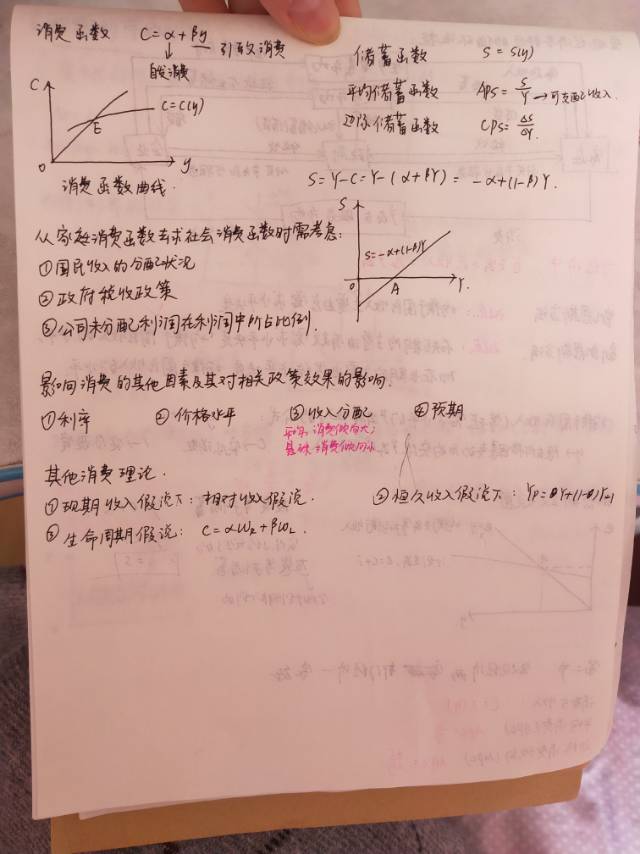 消费函数 C=α+βy 引致消费
自发消费
C
C=C(y)
E
0
y
消费函数曲线.
储蓄函数 S=S(y)
平均储蓄函数 APS=S/Y→可支配收入.
边际储蓄函数 CPS=ΔS/ΔY.
S=Y-C=Y-(α+βY)=-α+(1-β)Y.
S
S=-α+(1-β)Y
0
A
Y.
从家庭消费函数去求社会消费函数时需考虑:
①国民收入的分配状况
②政府税收政策
③公司未分配利润在利润中所占比例.
影响消费的其他因素及其对相关政策效果的影响.
①利率 ②价格水平 ③收入分配 ④预期
消费倾向大;
消费倾向小
其他消费理论.
①现期收入假说下:相对收入假说. ②恒久收入假说下:YP=θY+(1-θ)Y-1
③生命周期假说: C=αWR+βWL.